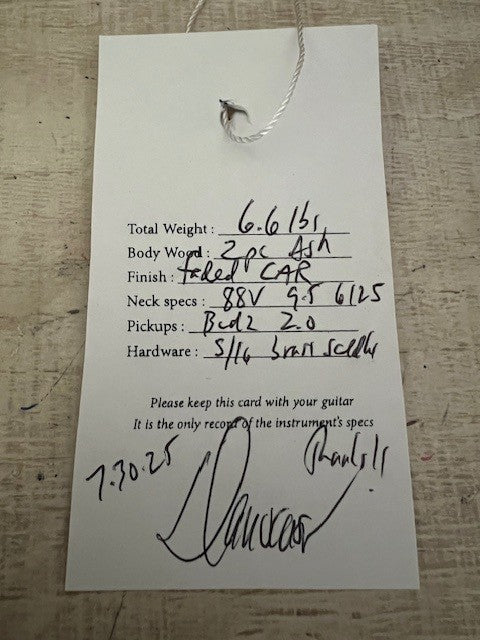 Total Weight : 6.6 lbs,
Body Wood : 2 pc Ash
Finish : faded CAR
Neck specs : 88V 9.5 6125
Pickups : 2.0
Hardware : 5/16 brass saddles
Please keep this card with your guitar
It is the only record of the instrument's specs
7.30.25 Thanks!!
Danocaster